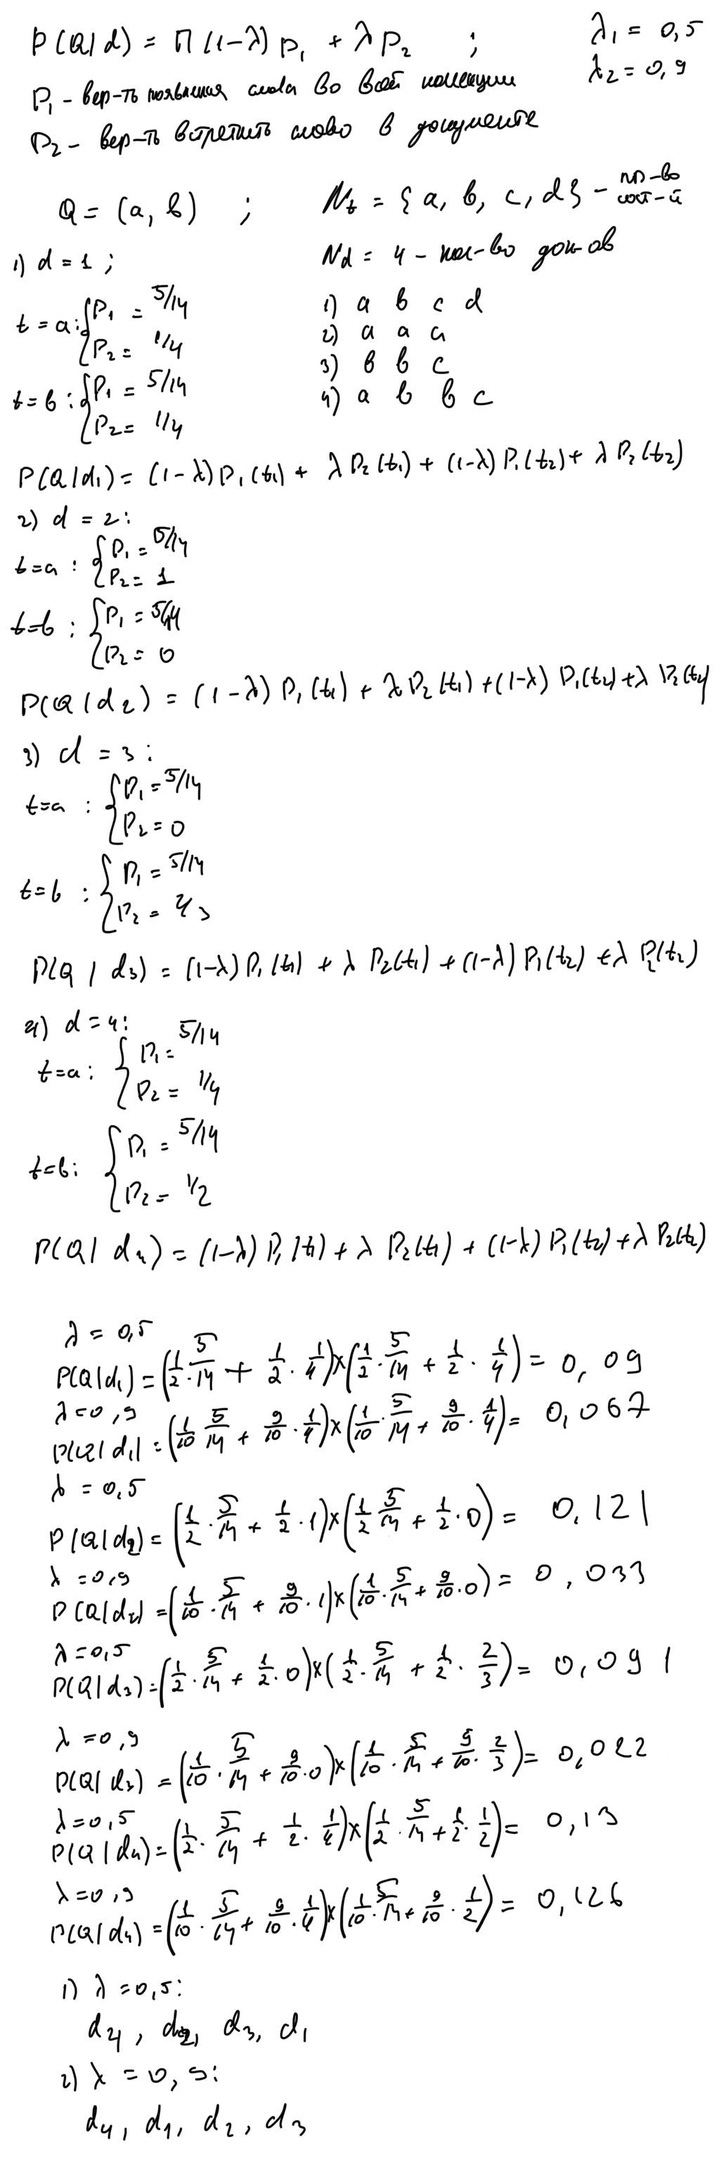 P(Q|d) = П (1-λ) p₁ + λ p₂ ; λ₁ = 0,5
λ₂ = 0,9
P₁ - вер-ть появления слова во всей коллекции
P₂ - вер-ть встретить слово в документе
Q = (a, b) ; N_t = {a, b, c, d} -
1) d = 1 ; N_d = 4 - кол-во док-ов
t = a: { P₁ = 5/14 1) a b c d
P₂ = 1/4 2) a a a
t = b: { P₁ = 5/14 3) b b c
P₂ = 1/4 4) a b b c
P(Q|d₁) = (1-λ) P₁(t₁) + λ P₂(t₁) + (1-λ) P₁(t₂) + λ P₂(t₂)
2) d = 2:
t=a : { P₁ = 5/14
P₂ = 1
t=b : { P₁ = 5/14
P₂ = 0
P(Q|d₂) = (1-λ) P₁(t₁) + λ P₂(t₁) + (1-λ) P₁(t₂) + λ P₂(t₂)
3) d = 3:
t=a : { P₁ = 5/14
P₂ = 0
t=b : { P₁ = 5/14
P₂ = 2/3
P(Q|d₃) = (1-λ) P₁(t₁) + λ P₂(t₁) + (1-λ) P₁(t₂) + λ P₂(t₂)
4) d = 4:
t=a : { P₁ = 5/14
P₂ = 1/4
t=b: { P₁ = 5/14
P₂ = 1/2
P(Q|d₄) = (1-λ) P₁(t₁) + λ P₂(t₁) + (1-λ) P₁(t₂) + λ P₂(t₂)
λ = 0,5
P(Q|d₁) = (1/2 · 5/14 + 1/2 · 1/4)×(1/2 · 5/14 + 1/2 · 1/4) = 0,09
λ=0,9
P(Q|d₁) = (1/10 · 5/14 + 9/10 · 1/4)×(1/10 · 5/14 + 9/10 · 1/4) = 0,067
λ = 0,5
P(Q|d₂) = (1/2 · 5/14 + 1/2 · 1)×(1/2 · 5/14 + 1/2 · 0) = 0,121
λ = 0,9
P(Q|d₂) = (1/10 · 5/14 + 9/10 · 1)×(1/10 · 5/14 + 9/10 · 0) = 0,033
λ = 0,5
P(Q|d₃) = (1/2 · 5/14 + 1/2 · 0)×(1/2 · 5/14 + 1/2 · 2/3) = 0,091
λ = 0,9
P(Q|d₃) = (1/10 · 5/14 + 9/10 · 0)×(1/10 · 5/14 + 9/10 · 2/3) = 0,022
λ = 0,5
P(Q|d₄) = (1/2 · 5/14 + 1/2 · 1/4)×(1/2 · 5/14 + 1/2 · 1/2) = 0,13
λ = 0,9
P(Q|d₄) = (1/10 · 5/14 + 9/10 · 1/4)×(1/10 · 5/14 + 9/10 · 1/2) = 0,126
1) λ = 0,5:
d₄, d₂, d₃, d₁
2) λ = 0,9:
d₄, d₁, d₂, d₃